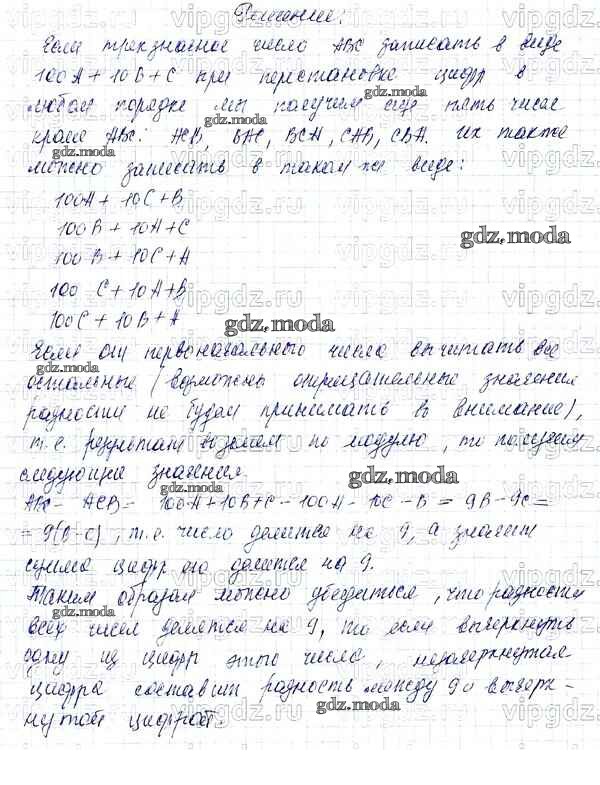 Решение:
Если трехзначное число ABC записать в виде
100A + 10B + C при перестановке цифр в
любом порядке мы получим еще пять чисел
кроме ABC: ACB, BAC, BCA, CAB, CBA. Их также
можно записать в таком же виде:
100A + 10C + B
100B + 10A + C
100B + 10C + A
100C + 10A + B
100C + 10B + A
Если от первоначального числа вычитать все
остальные (возможные отрицательные значения
разности не будем принимать во внимание),
т.е. результат возьмем по модулю, то получим
следующие значения
ABC - ACB = 100A + 10B + C - 100A - 10C - B = 9B - 9C =
= 9(B-C), т.е. число делится на 9, а значит
сумма цифр его делится на 9.
Таким образом можно убедиться, что разности
всех чисел делятся на 9, то если вычеркнуть
одну из цифр этого числа, незачеркнутая
цифра составит разность между 9 и вычерк-
нутой цифрой.
gdz.moda
vipgdz.ru